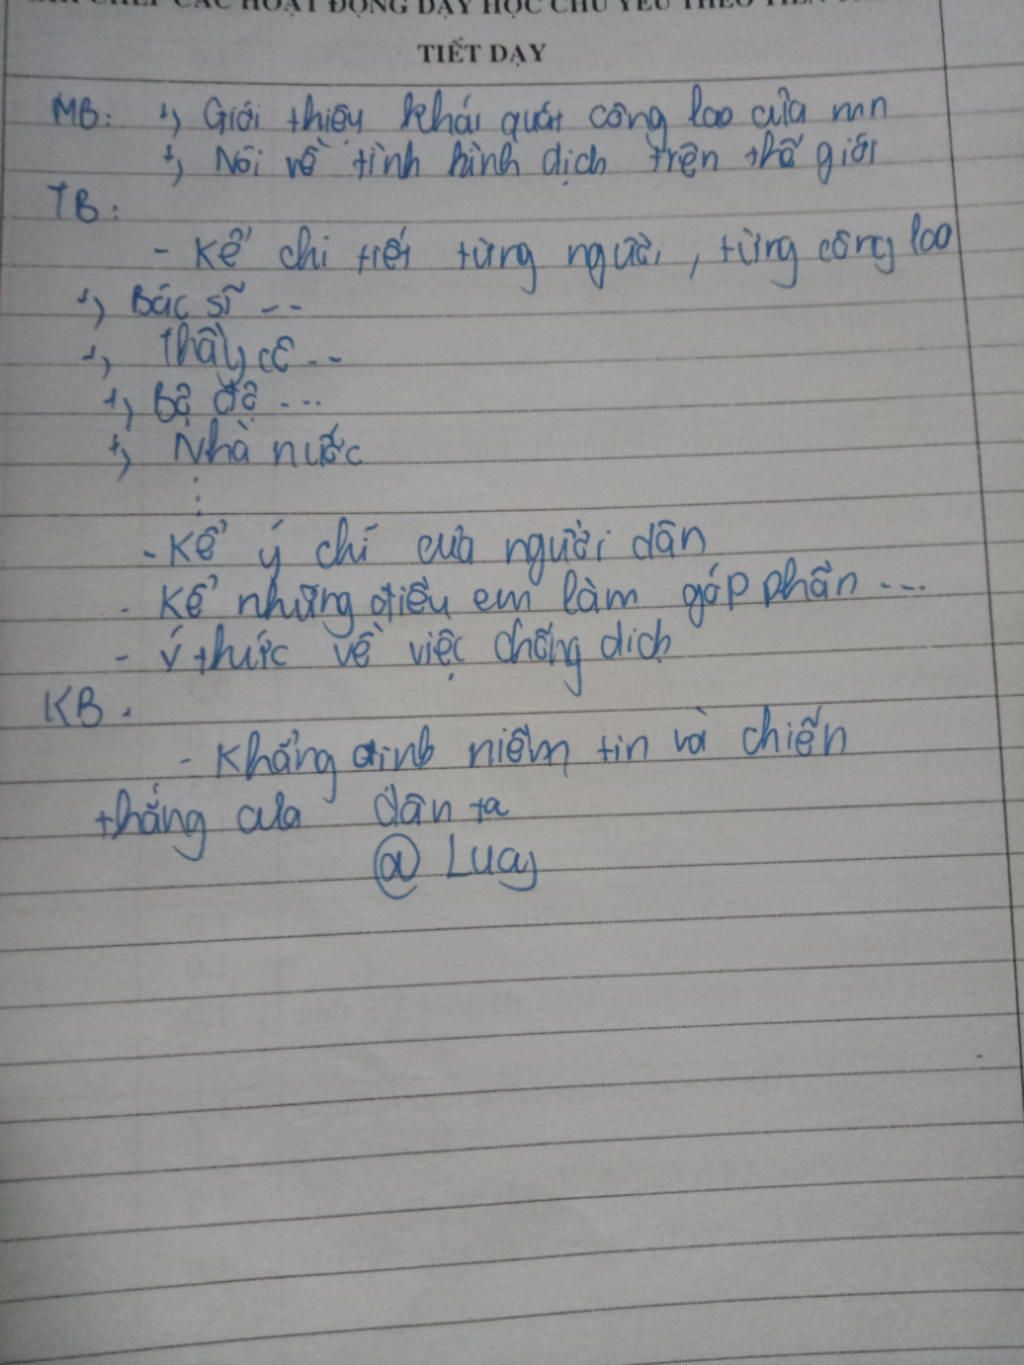 CHÉP CÁC HOẠT ĐỘNG DẠY HỌC CHỦ YẾU THEO TIẾN
TIẾT DẠY
MB: +, Giới thiệu khái quát công lao của mn
+, Nói về tình hình dịch trên thế giới
TB:
- Kể chi tiết từng người, từng công lao
+, Bác sĩ ---
+, Thầy cô ---
+, Bộ độ ...
+, Nhà nước
⋮
- Kể ý chí của người dân
- Kể những điều em làm góp phần ...
- Ý thức về việc chống dịch
KB.
- Khẳng định niềm tin và chiến
thắng của dân ta
@ Lucy